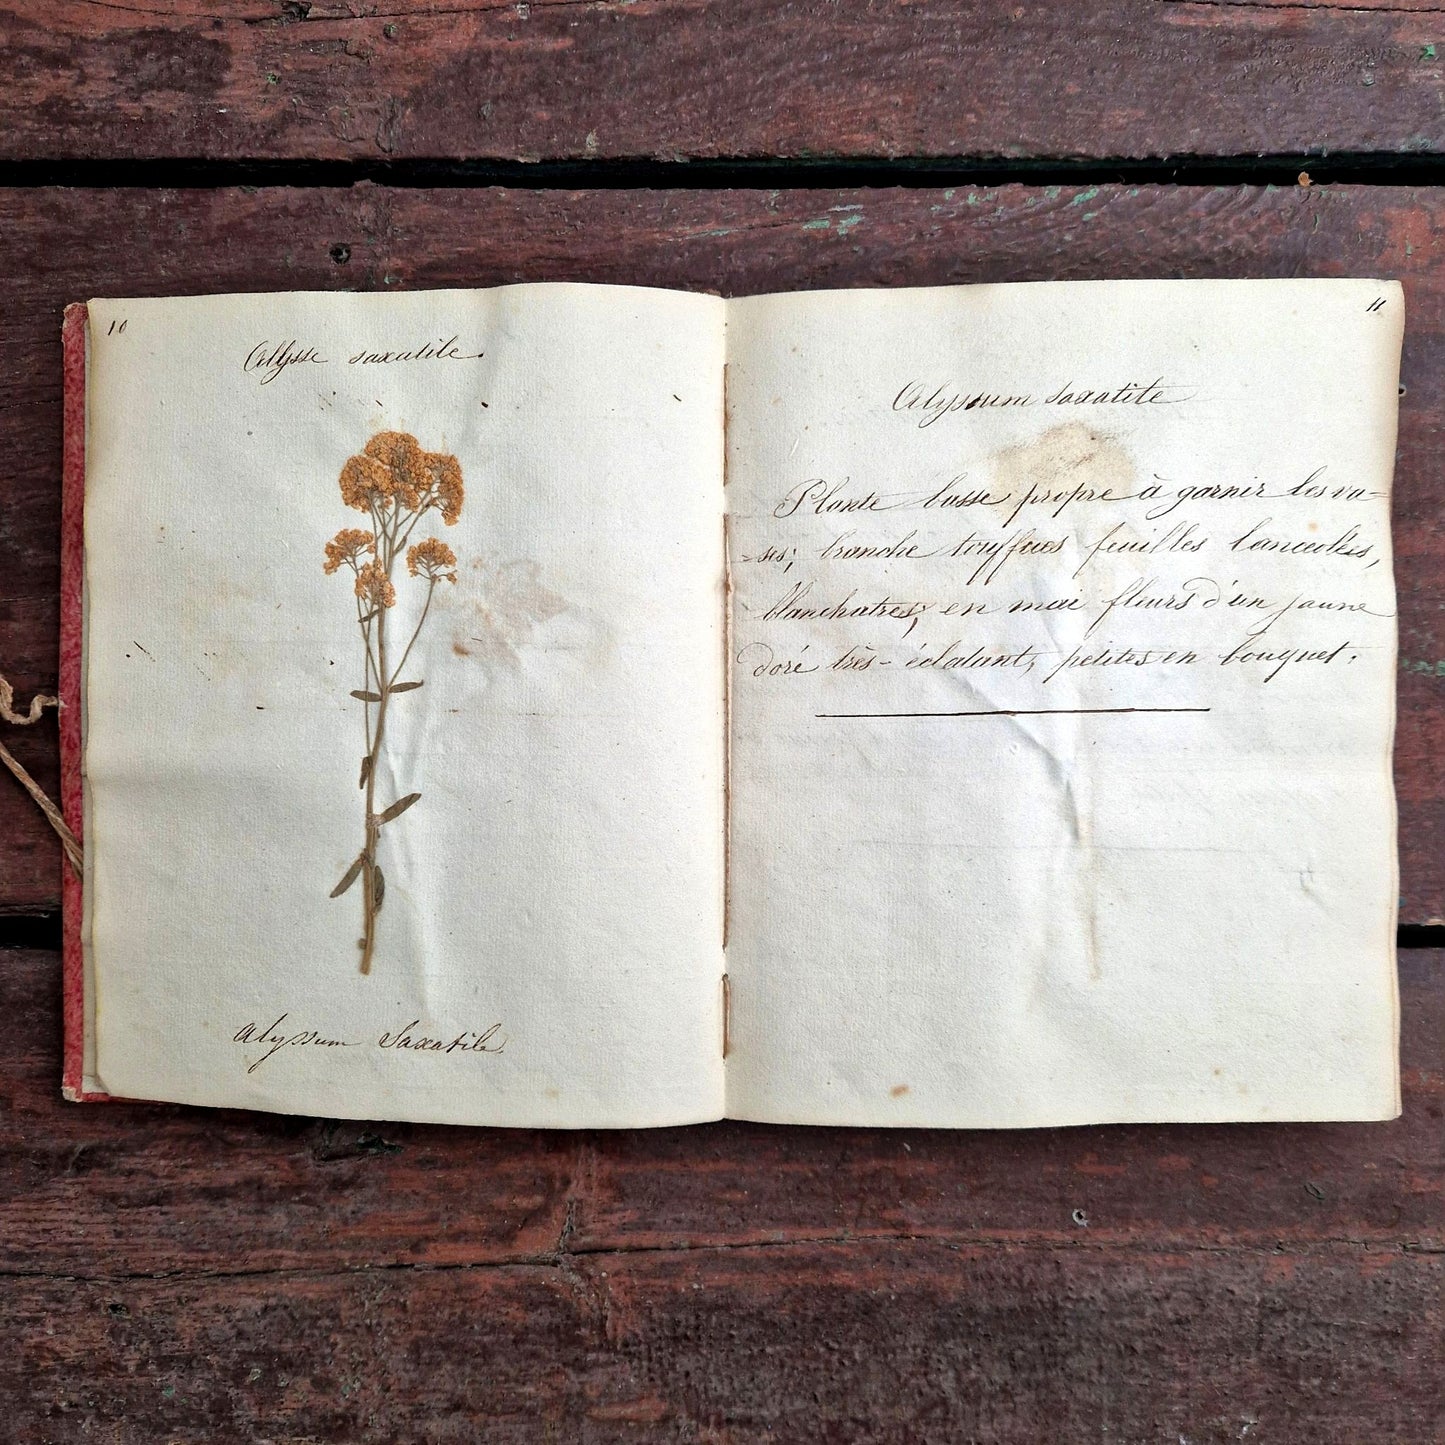 10
Alysse saxatile.
Alyssum Saxatile.
11
Alyssum saxatile
Plante basse propre à garnir les va=
=ses; branche touffues feuilles lanceolées,
blanchatres; en mai fleurs d'un jaune
doré très-éclatant, petites en bouquet.